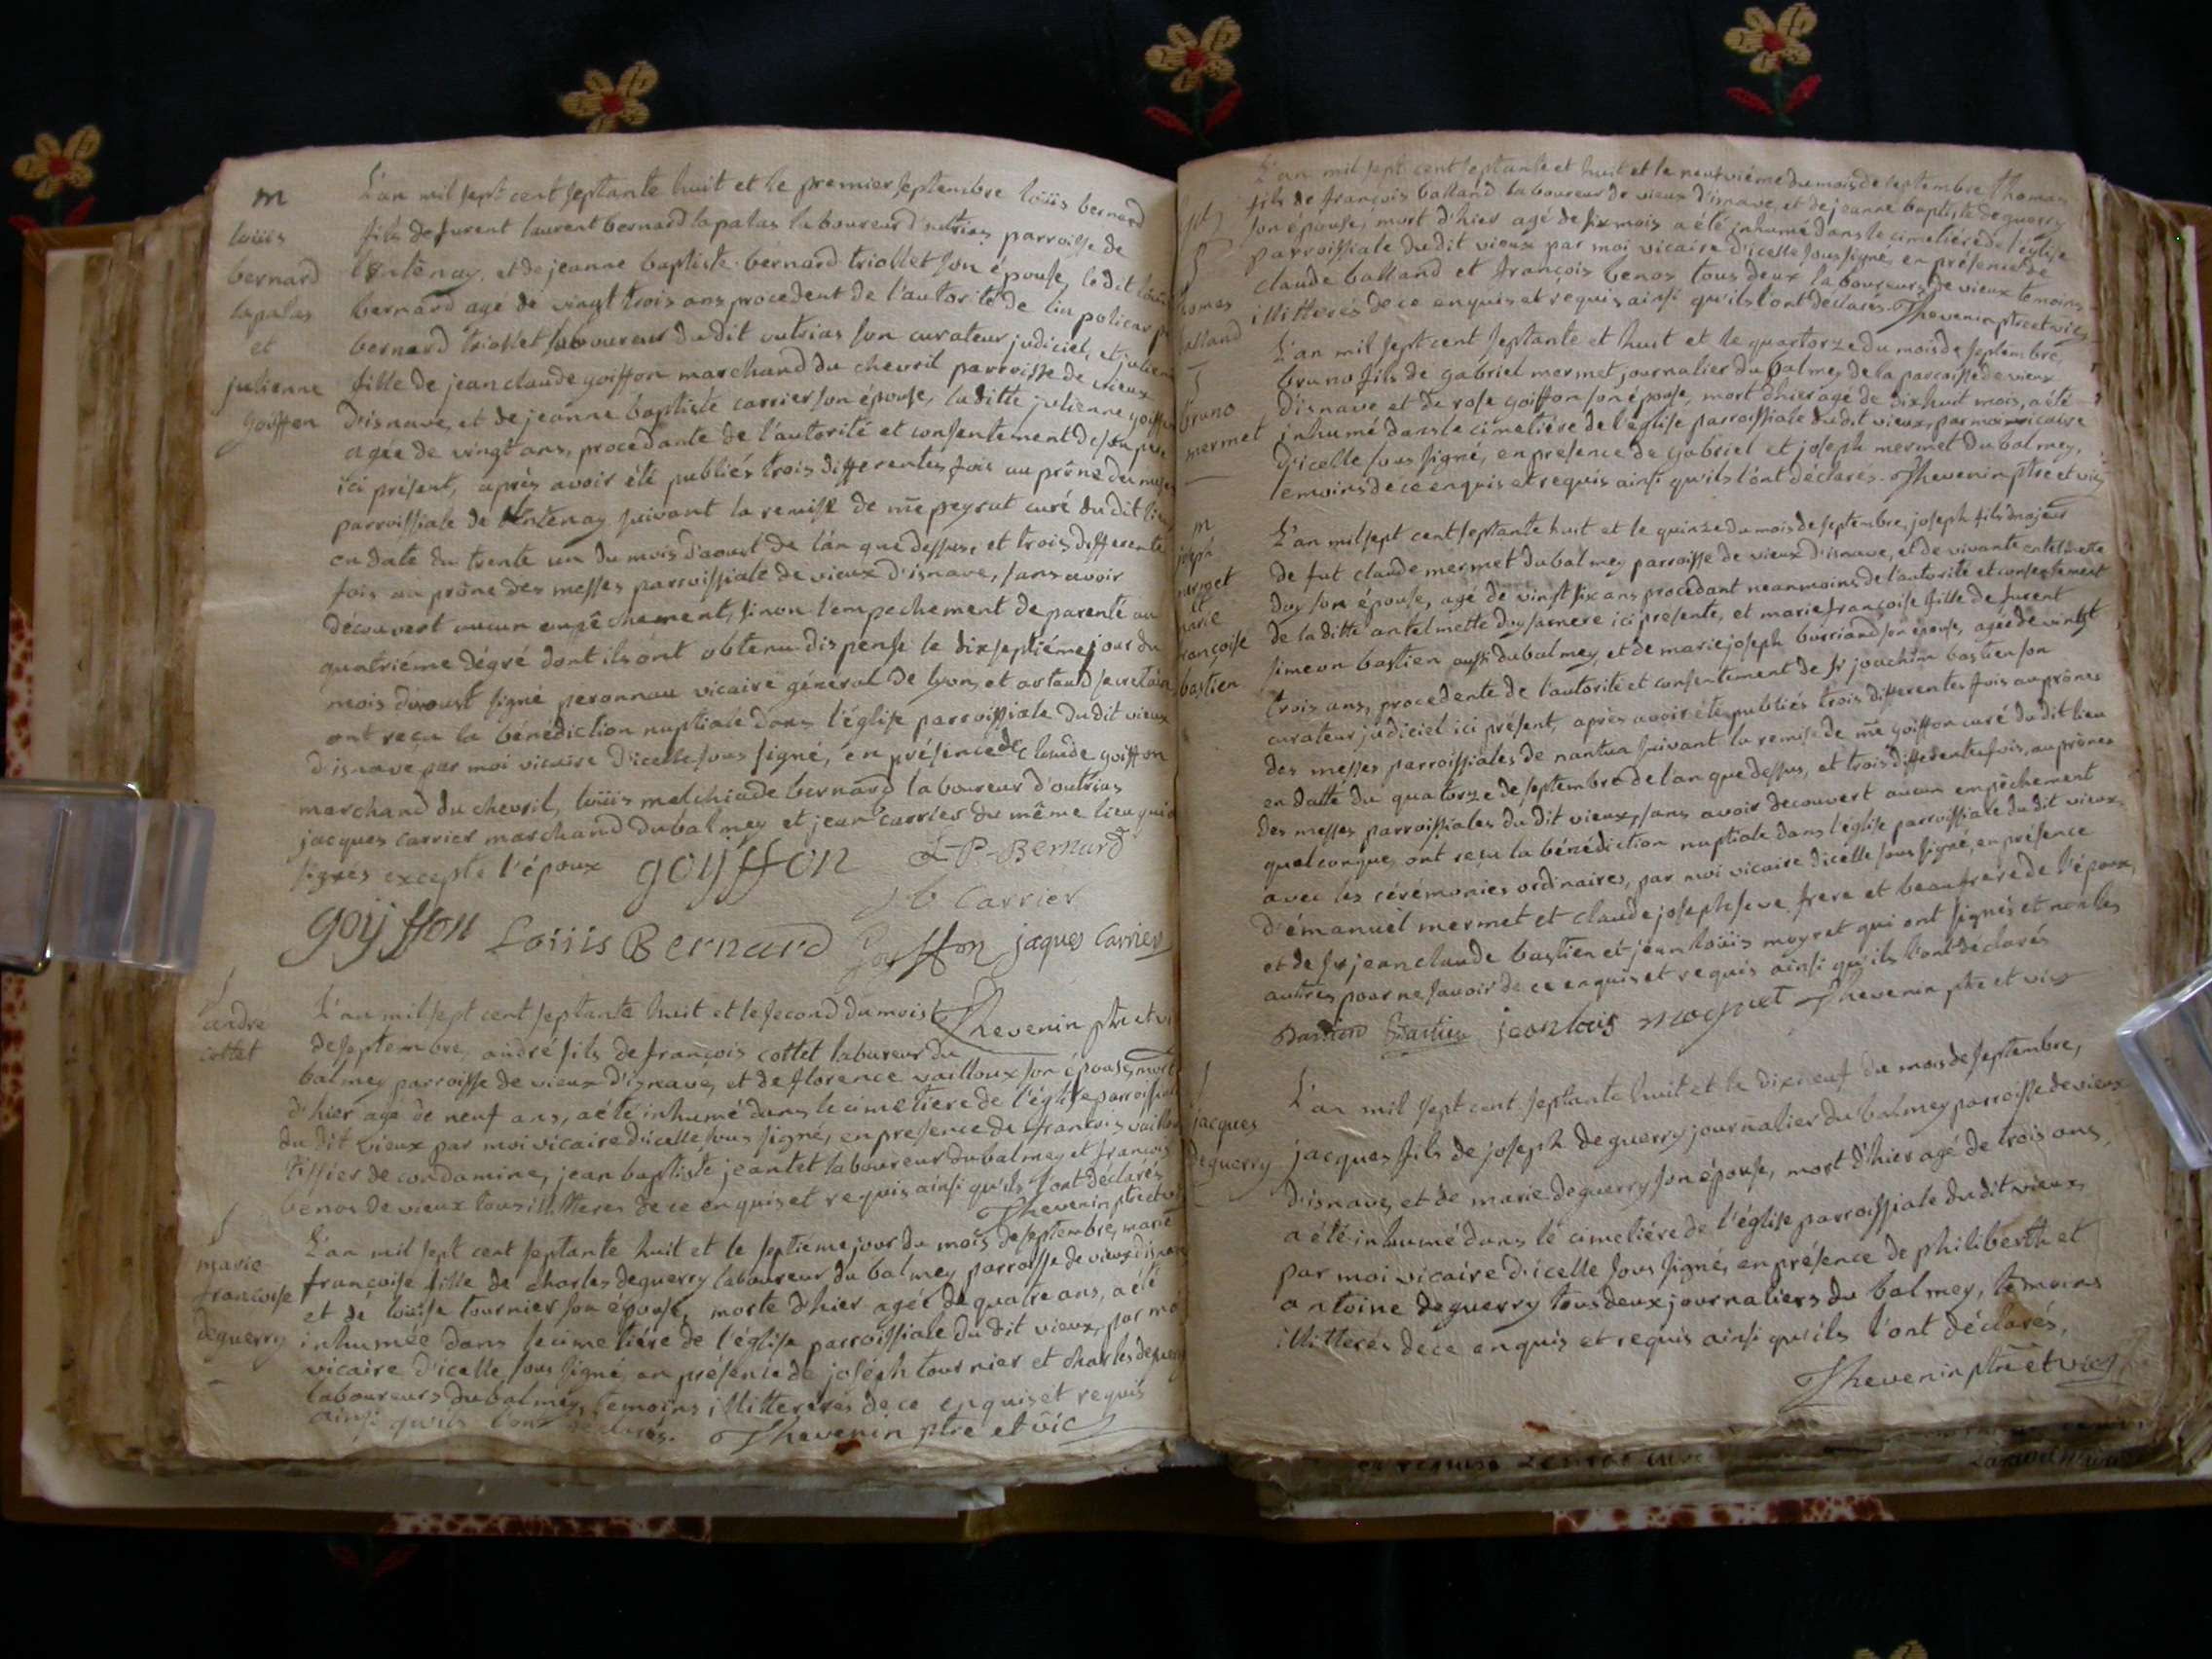 m
L'an mil sept cent septante huit et le premier septembre loüis bernard
loüis
bernard
lapalas
et
julienne
goiffon
fils de furent laurent bernard lapalas laboureur d'outrias parroisse de
lantenay, et de jeanne baptiste bernard triollet son épouse, le dit loüis
bernard agé de vingt trois ans procedent de l'autorité de
bernard triollet laboureur du dit outrias son curateur judiciel, et julienne
fille de jean claude goiffon marchand du chevril parroisse de vieux
d'isnave, et de jeanne baptiste carrier son épouse, la ditte julienne goiffon
agée de vingt ans, procedante de l'autorité et consentement de son pere
ici présent, après avoir été publiés trois differentes fois au prône du messe
parroissiale de lantenay suivant la remise de mre peyrat curé du dit lieu
en date du trente un du mois d'aoust de l'an que dessus, et trois differente
fois au prône des messes parroissiale de vieux d'isnave, sans avoir
découvert aucun empêchement, sinon l'empechement de parenté au
quatriéme dégré dont ils ont obtenu dispense le dix septiéme jour du
mois d'aoust signé peronnau vicaire général de lyon, et artaud secretaire
ont reçu la bénédiction nuptiale dans l'église parroissiale du dit vieux
d'isnave par moi vicaire d'icelle sous signé, en présence de claude goiffon
marchand du chevril, loüis melchiade bernard laboureur d'outrias
jacques carrier marchand du balmey et jean carrier du même lieu qui
signés excepté l'époux goyffon L-P-Bernard
jb Carrier
goyffon Loüis Bernard Goyffon jaques Carrier
Thevenin ptre et vi
andré
cottet
L'an mil sept cent septante huit et le second du mois
de septembre, andré fils de françois cottet laboureur du
balmey parroisse de vieux d'isnave, et de florence vailloux son épouse, mort
d'hier agé de neuf ans, a été inhumé dans le cimetiere de l'église parroissiale
du dit vieux par moi vicaire d'icelle sous signé, en presence de francois vailloux
tissier de condamine, jean baptiste jeantet laboureur du balmey et francois
benos de vieux tous illitteres de ce enquis et requis ainsi qu'ils l'ont déclarés
Thevenin ptre et vi
marie
francoise
deguerry
L'an mil sept cent septante huit et le septieme jour du mois de septembre, marie
françoise fille de charles deguerry laboureur du balmey parroisse de vieux d'isnave
et de loüise tournier son épouse, morte d'hier agée de quatre ans, a été
inhumée dans le cimetière de l'église parroissiale du dit vieux, par moi
vicaire d'icelle, sous signé, en présence de joséph tournier et charles deguerry
laboureurs du balmey, temoins illitterés de ce enquis et requis
ainsi qu'ils l'ont déclarés. Thevenin ptre et vic
L'an mil sept cent septante et huit et le neuf viéme du mois de septembre thomas
thomas
balland
fils de françois balland laboureur de vieux d'isnave, et de jeanne baptiste deguerry
son épouse, mort d'hier agé de six mois a été inhumé dans le cimetiére de l'église
parroissiale du dit vieux par moi vicaire d'icelle sous signé, en présence de
claude balland et françois benos tous deux laboureurs de vieux temoins
illitterés de ce enquis et réquis ainsi qu'ils l'ont déclarés. Thevenin ptre et vic
bruno
mermet
L'an mil sept cent septante et huit et le quatorze du mois de septembre,
bruno fils de gabriel mermet journalier du balmey de la parroisse de vieux
d'isnave et de rose goiffon son épouse, mort d'hier agé de dix huit mois, a été
inhumé dans le cimetiére de l'église parroissiale du dit vieux, par moi vicaire
d'icelle sous signé, en presence de gabriel et joseph mermet du balmey,
temoins de ce enquis et requis ainsi qu'ils l'ont déclarés. Thevenin ptre et vic
m
joseph
mermet
et
marie
françoise
bastien
L'an mil sept cent septante huit et le quinze du mois de septembre, joseph fils majeur
de fut claude mermet du balmey parroisse de vieux d'isnave, et de vivante antelmette
duy son épouse, agé de vingt six ans procedant neanmoins de l'autorité et consentement
de la ditte antelmette duy sa mere ici presente, et marie françoise fille de furent
simeon bastien aussi du balmey, et de marie joseph burriand son épouse, agée de vingt
trois ans, procedente de l'autorité et consentement de sr joachim bastien son
curateur judiciel ici présent, après avoir été publiés trois differentes fois au prônes
des messes parroissiales de nantua suivant la remise de mre goiffon curé du dit lieu
en datte du quatorze de septembre de l'an que dessus, et trois differentes fois, au prônes
des messes parroissiales du dit vieux, sans avoir decouvert aucun empêchement
quelconque, ont reçu la bénédiction nuptiale dans l'église parroissiale du dit vieux,
avec les cérémonies ordinaires, par moi vicaire d'icelle sous signé, en présence
d'émanuel mermet et claude joseph seve frere et beaufrere de l'époux,
et de sr jean claude bastien et jean loüis moyret qui ont signés et non les
autres pour ne savoir de ce enquis et requis ainsi qu'ils l'ont declarés
Bastien Bastien jean louis moyret Thevenin ptre et vic
jacques
deguerry
L'an mil sept cent septante huit et le dix neuf du mois de septembre,
jacques fils de joseph deguerry journalier du balmey parroisse de vieux
d'isnave, et de marie deguerry son épouse, mort d'hier agé de trois ans,
a été inhumé dans le cimetiére de l'église parroissiale du dit vieux,
par moi vicaire d'icelle sous signé, en présence de philiberth et
antoine deguerry tous deux journaliers du balmey, temoins
illitterés de ce enquis et requis ainsi qu'ils l'ont déclarés,
Thevenin ptre et vic